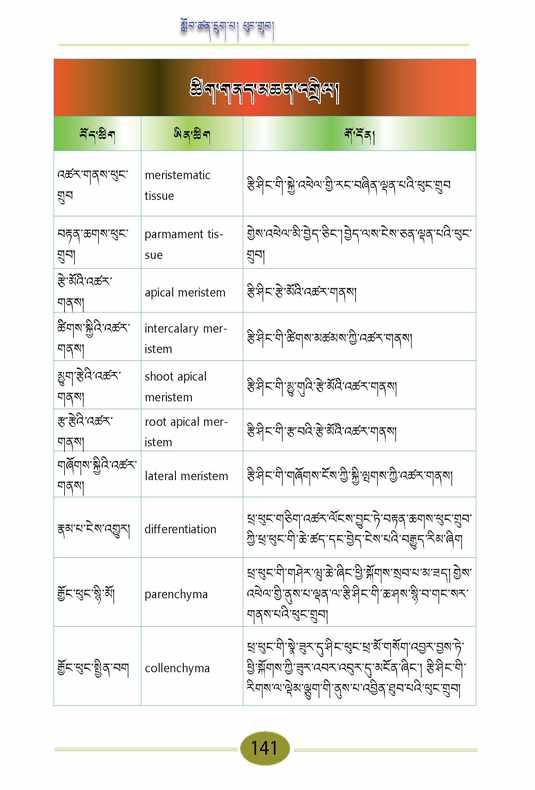 སློབ་ཚན་དྲུག་པ། ཕུང་གྲུབ།
ཚིག་གནད་མཆན་འགྲེལ།
བོད་ཚིག
ཨིན་ཚིག
གོ་དོན།
འཚར་གནས་ཕུང་
གྲུབ
meristematic
tissue
རྩི་ཤིང་གི་སྐྱེ་འཕེལ་གྱི་རང་བཞིན་ལྡན་པའི་ཕུང་གྲུབ
བརྟན་ཆགས་ཕུང་
གྲུབ།
parmament tis-
sue
གྱེས་འཕེལ་མི་བྱེད་ཅིང་། བྱེད་ལས་ངེས་ཅན་ལྡན་པའི་ཕུང་
གྲུབ།
རྩེ་མོའི་འཚར་
གནས།
apical meristem
རྩི་ཤིང་རྩེ་མོའི་འཚར་གནས།
ཚིགས་སྐྱིའི་འཚར་
གནས།
intercalary mer-
istem
རྩི་ཤིང་གི་ཚིགས་མཚམས་ཀྱི་འཚར་གནས།
མྱུག་རྩེའི་འཚར་
གནས།
shoot apical
meristem
རྩི་ཤིང་གི་མྱུ་གུའི་རྩེ་མོའི་འཚར་གནས།
རྩ་རྩེའི་འཚར་
གནས།
root apical mer-
istem
རྩི་ཤིང་གི་རྩ་བའི་རྩེ་མོའི་འཚར་གནས།
གཞོགས་སྐྱིའི་འཚར་
གནས།
lateral meristem
རྩི་ཤིང་གི་གཞོགས་ངོས་ཀྱི་སྐྱི་ལྤགས་ཀྱི་འཚར་གནས།
རྣམ་པ་ངེས་འགྱུར།
differentiation
ཕྲ་ཕུང་གཅིག་འཚར་ལོངས་བྱུང་ཏེ་བརྟན་ཆགས་ཕུང་གྲུབ་
ཀྱི་ཕྲ་ཕུང་གི་ཆེ་ཚད་དང་བྱེད་ངེས་པའི་བརྒྱུད་རིམ་ཞིག
རྐྱོང་ཕུང་སྙི་མོ།
parenchyma
ཕྲ་ཕུང་གི་གཤེར་ཝུ་ཆེ་ཞིང་ཕྱི་སྐོགས་སྲབ་པ་མ་ཟད། གྱེས་
འཕེལ་གྱི་ནུས་པ་ལྡན་ལ་རྩི་ཤིང་གི་ཆ་ཤས་སྙི་བ་གང་སར་
གནས་པའི་ཕུང་གྲུབ།
རྐྱོང་ཕུང་སྤྱིན་བག
collenchyma
ཕྲ་ཕུང་གི་སྣེ་ཟུར་དུ་ཤིང་ཕུང་ཕྲ་མོ་གསོག་འབྱར་བྱས་ཏེ་
ཕྱི་སྐོགས་ཀྱི་ཟུར་འབར་འབུར་དུ་མངོན་ཞིང་། རྩི་ཤིང་གི་
རིགས་ལ་ལྡེམ་ལྕུག་གི་ནུས་པ་འབྱིན་ཐུབ་པའི་ཕུང་གྲུབ།
141